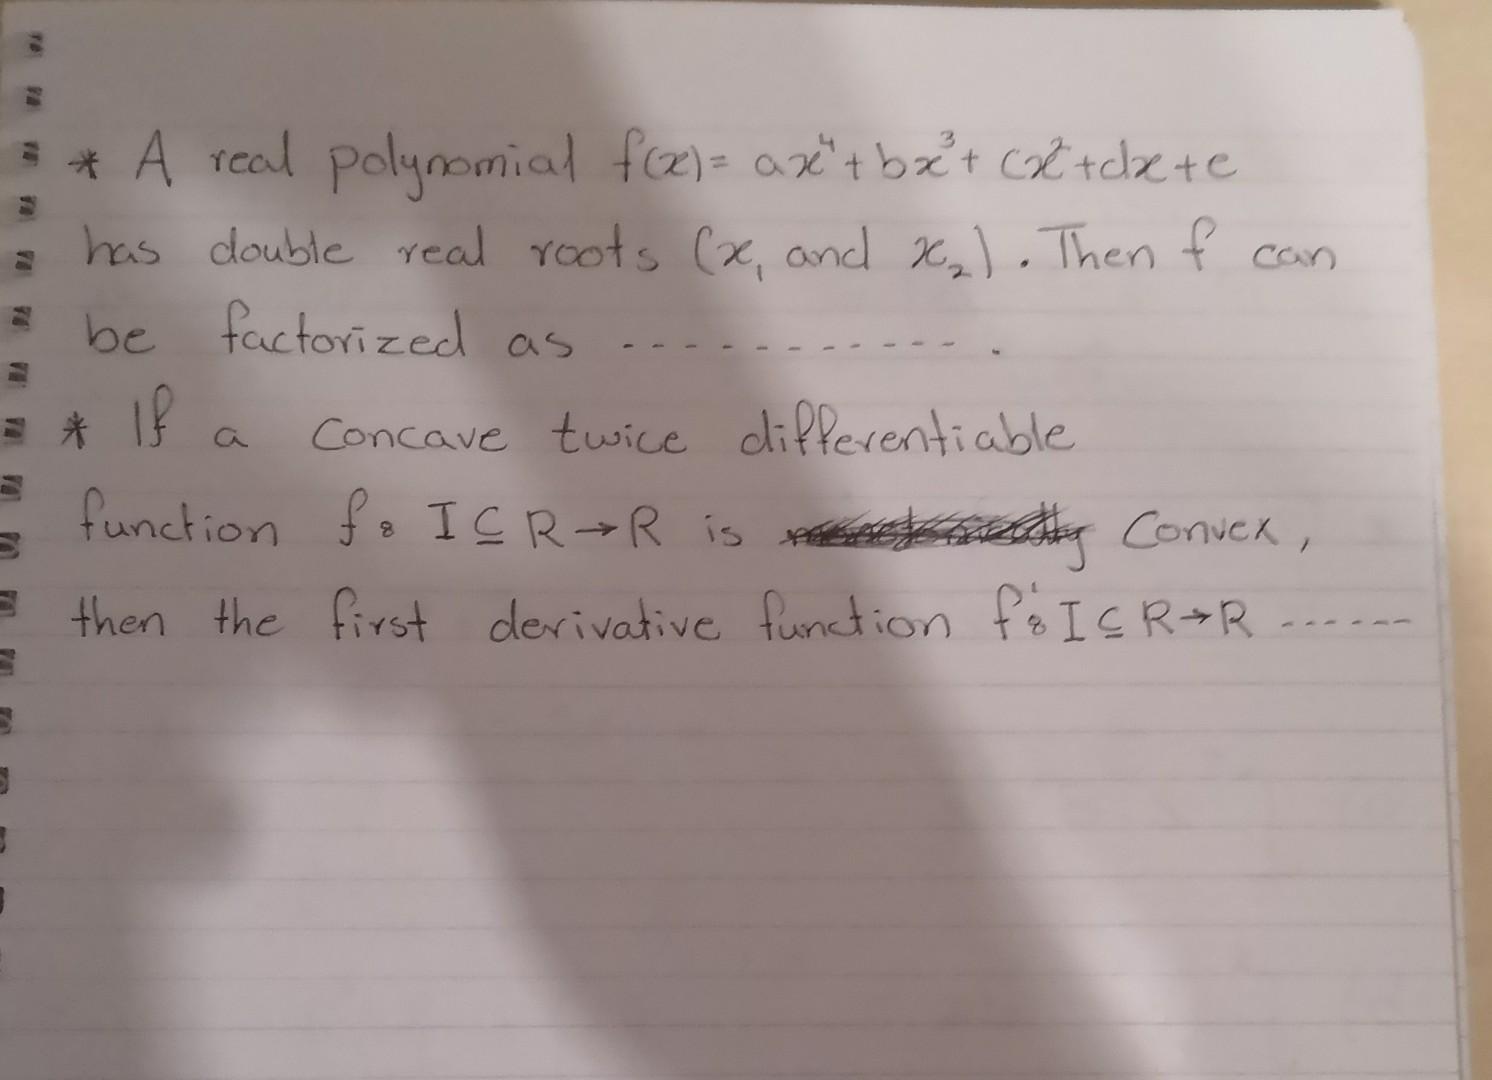 * A real polynomial f(x)= ax⁴+bx³+cx²+dx+e
has double real roots (x₁ and x₂). Then f can
be factorized as ------------.
* If a concave twice differentiable
function f: I⊆R→R is convex,
then the first derivative function f': I⊆R→R ------